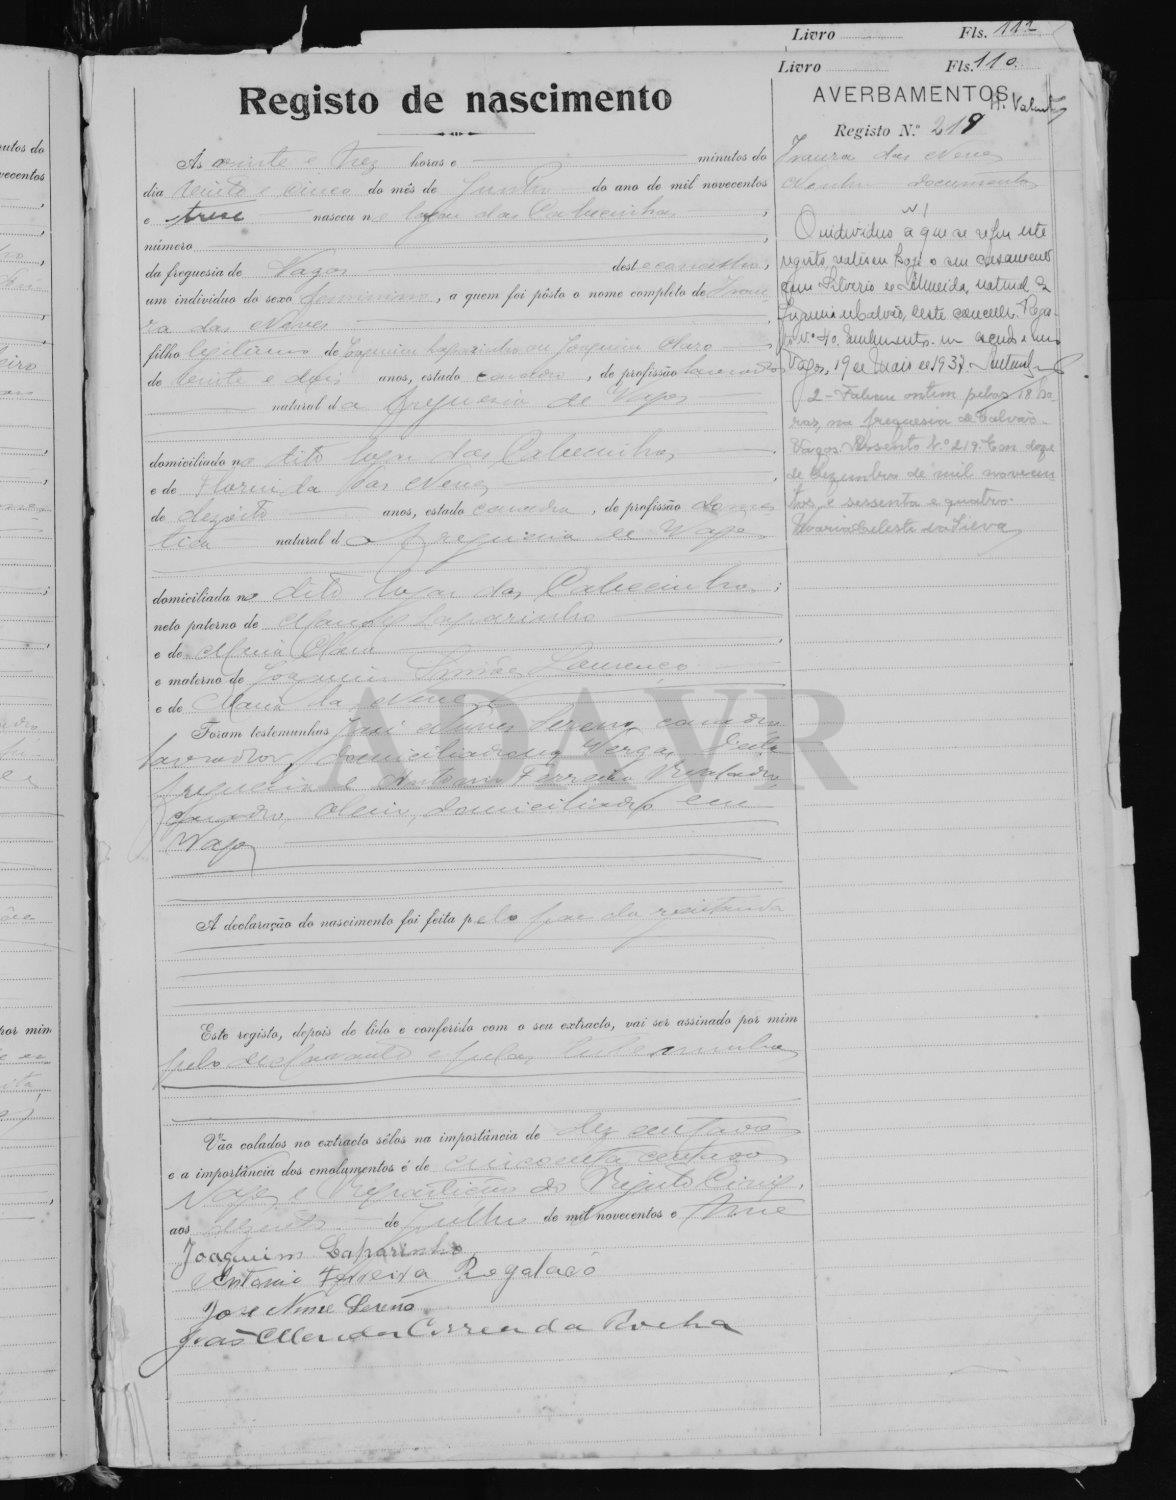 Livro Fls. 112
Livro Fls. 110
Registo de nascimento
Ás vinte e trez horas e minutos do
dia vinte e cinco do mês de Junho do ano de mil novecentos
e treze nasceu no logar das Cabecinhas,
número
da freguesia de Vagos deste concelho,
um individuo do sexo feminino, a quem foi pôsto o nome completo de
ra das Neves
filho legitimo de Joaquim Laparinho ou Joaquim Claro
de vinte e dois anos, estado casado, de profissão lavrador
natural da freguesia de Vagos
domiciliado no dito logar das Cabecinhas
e de Florinda das Neves
de dezoito anos, estado casada, de profissão domes
tica natural da freguesia de Vagos
domiciliada no dito logar das Cabecinhas;
neto paterno de Manoel Laparinho
e de Maria Clara
e materno de Joaquim Simões Lourenço
e de Maria das Neves
Foram testemunhas José Nunes Sereno, casado
lavrador, domiciliado na Vergas, desta
freguesia e Antonio Ferreira Regalado,
casado, domiciliado em
Vagos
A declaração do nascimento foi feita pelo pae da registanda
Este registo, depois de lido e conferido com o seu extracto, vai ser assinado por mim
pelo declarante e pelas testemunhas
Vão colados no extracto sêlos na importância de dez centavos
e a importância dos emolumentos é de cincoenta centavos
Vagos e Repartição do Registo Civil,
aos de Julho de mil novecentos e treze
Joaquim Laparinho
Antonio Ferreira Regalado
José Nunes Sereno
João Mendes Correia da Rocha
AVERBAMENTOS
Registo N.º 219
das Neves
documento
Nº 1
O individuo a que se refere este
registo, realisou hoje o seu casamento
com Silverio de Almeida, natural da
freguesia de Calvão, deste concelho. Regis-
to nº 40.
Vagos, 19 de Maio de 1937.
2 - Faleceu ontem pelas 18 ho-
ras, na freguesia de Calvão.
Vagos. Assento Nº 219. Em doze
de dezembro de mil novecen
tos e sessenta e quatro.
Maria Celeste da Silva
ADAVR